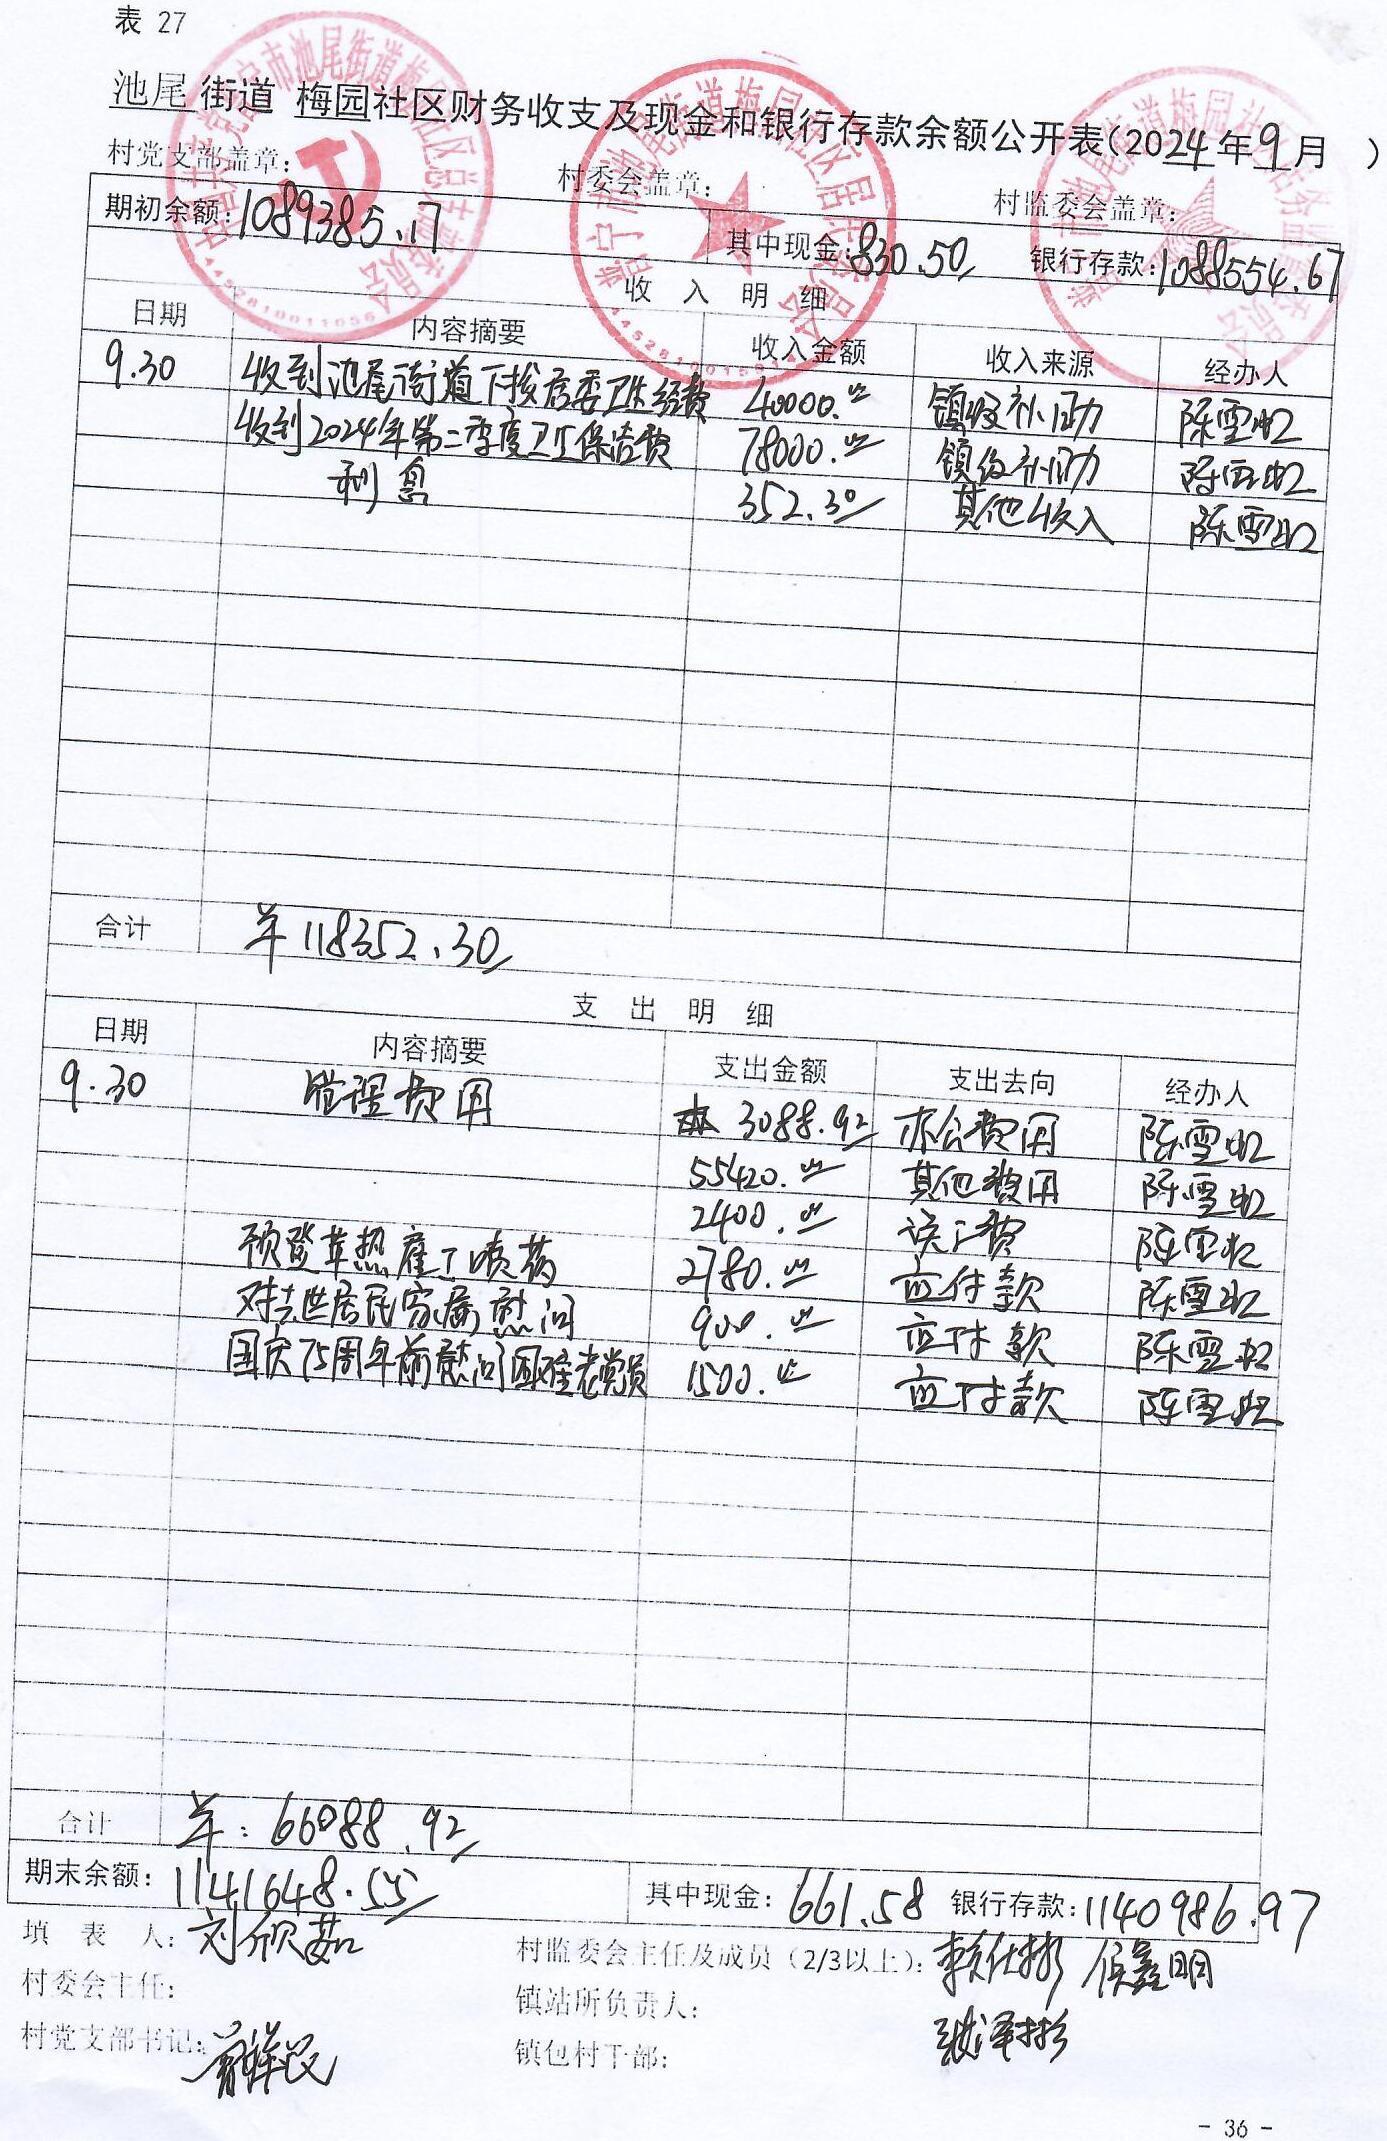 表 27
池尾 街道 梅园社区财务收支及现金和银行存款余额公开表(2024年9月 )
村党支部盖章: 村委会盖章: 村监委会盖章:
期初余额:1089385.17 其中现金:830.50 银行存款:1088554.67
收 入 明 细
日期 内容摘要 收入金额 收入来源 经办人
9.30 收到池尾街道下拨居委卫生经费 40000.00 镇级补助 陈雪
收到2024年第二季度卫生保洁费 78000.00 镇级补助 陈雪
利息 352.30 其他收入 陈雪
合计 羊118352.30
支 出 明 细
日期 内容摘要 支出金额 支出去向 经办人
9.30 管理费用 3088.92 办公费用 陈雪
55420.00 其他费用 陈雪
2400.00 误工费 陈雪
预登革热雇工喷药 2780.00 应付款 陈雪
对去世居民家属慰问 900.00 应付款 陈雪
国庆75周年前慰问困难老党员 1500.00 应付款 陈雪
合计 羊:66088.92
期末余额:1141648.55 其中现金:661.58 银行存款:1140986.97
填 表 人:刘欣茹 村监委会主任及成员(2/3以上): 侯鑫明
村委会主任: 镇站所负责人:
村党支部书记: 镇包村干部:
- 36 -